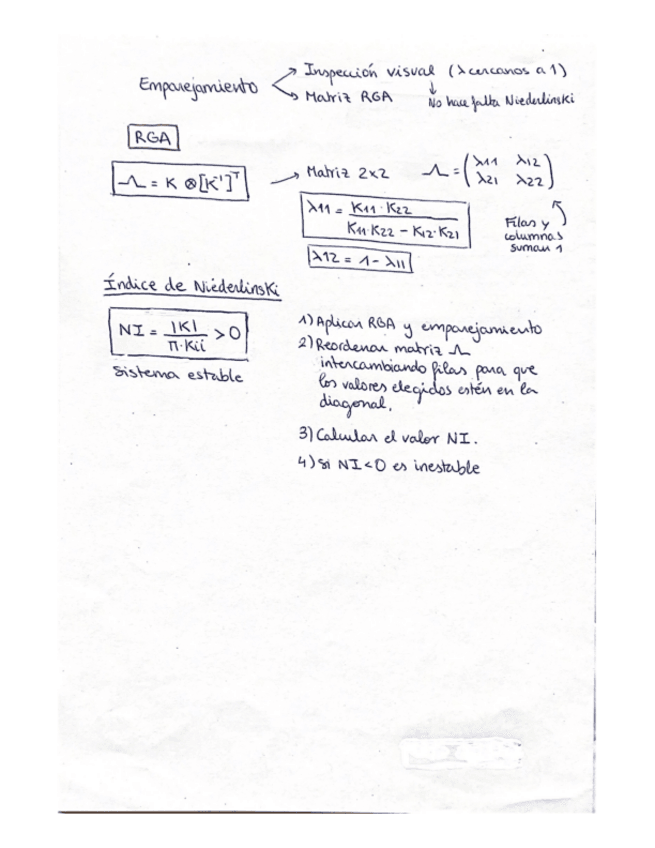 Emparejamiento → Inspección visual (λ cercanos a 1)
→ Matriz RGA ↓ No hace falta Niederlinski
RGA
Λ = K ⊗ [K⁻¹]ᵀ → Matriz 2x2 Λ = (λ11 λ12
λ21 λ22)
λ11 = K11·K22 / K11·K22 − K12·K21
Filas y
columnas
suman 1
λ12 = 1 − λ11
Índice de Niederlinski
NI = |K| / Π·Kii > 0
Sistema estable
1) Aplicar RGA y emparejamiento
2) Reordenar matriz Λ
intercambiando filas para que
los valores elegidos estén en la
diagonal.
3) Calcular el valor NI.
4) Si NI < 0 es inestable